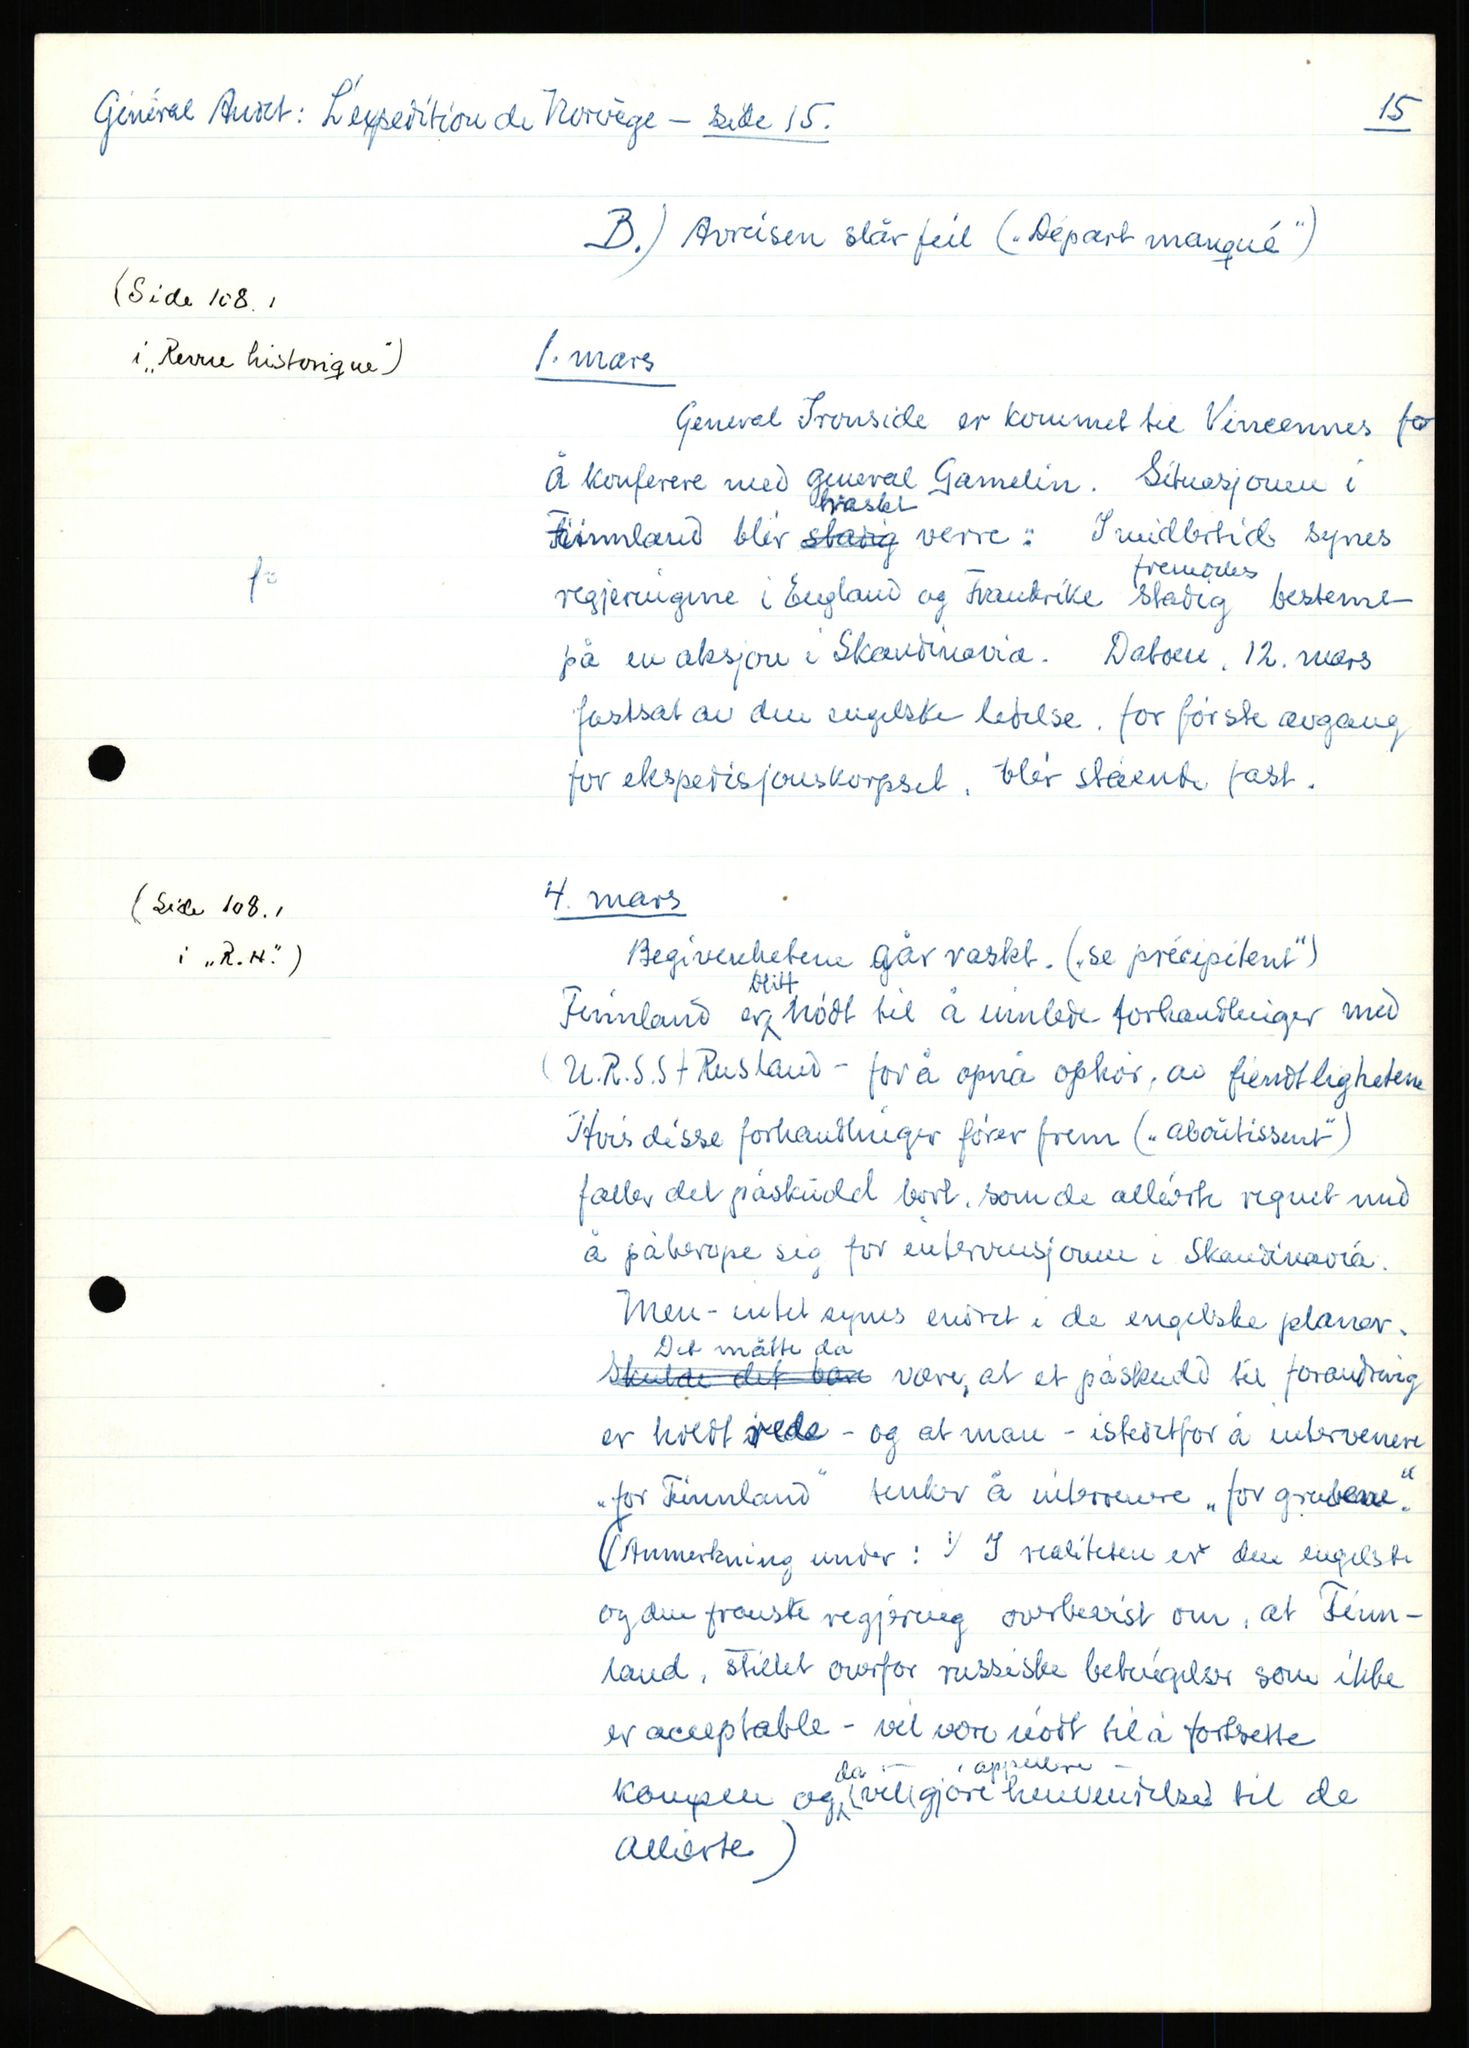 Général Audet: L'expedition de Norvège — side 15.
15
B.) Avreisen slår feil („Départ manqué")
(Side 108.,
i „Revue historique")
1. mars
General Ironside er kommet til Vincennes for
å konferere med general Gamelin. Situasjonen i
raskt
Finnland blir stadig verre: Imidlertid synes
fremdeles
regjeringene i England og Frankrike stadig bestemt
på en aksjon i Skandinavia. Datoen, 12. mars
fastsat av den engelske ledelse, for første avgang
for ekspedisjonskorpset, blir stående fast.
(Side 108.,
i „R.H.")
4. mars
Begivenhetene går raskt. („se précipitent")
blitt
Finnland er nødt til å innlede forhandlinger med
U.R.S.S + Rusland – for å opnå ophør, av fiendtlighetene
Hvis disse forhandlinger fører frem („aboutissent")
faller det påskudd bort, som de allierte regnet med
å påberope sig for intervensjonen i Skandinavia.
Men – intet synes endret i de engelske planer.
Det måtte da
Skulde det bare være, at et påskudd til forandring
er holdt rede – og at man – istedetfor å intervenere
„for Finnland" tenker å intervenere „for grubene".
(Anmerkning under: 1/ I realiteten er den engelske
og den franske regjering overbevist om, at Finn-
land, stillet overfor russiske betingelser som ikke
er acceptable – vil være nødt til å fortsette
da appellere –
kampen og vil gjøre henvendelse til de
allierte)